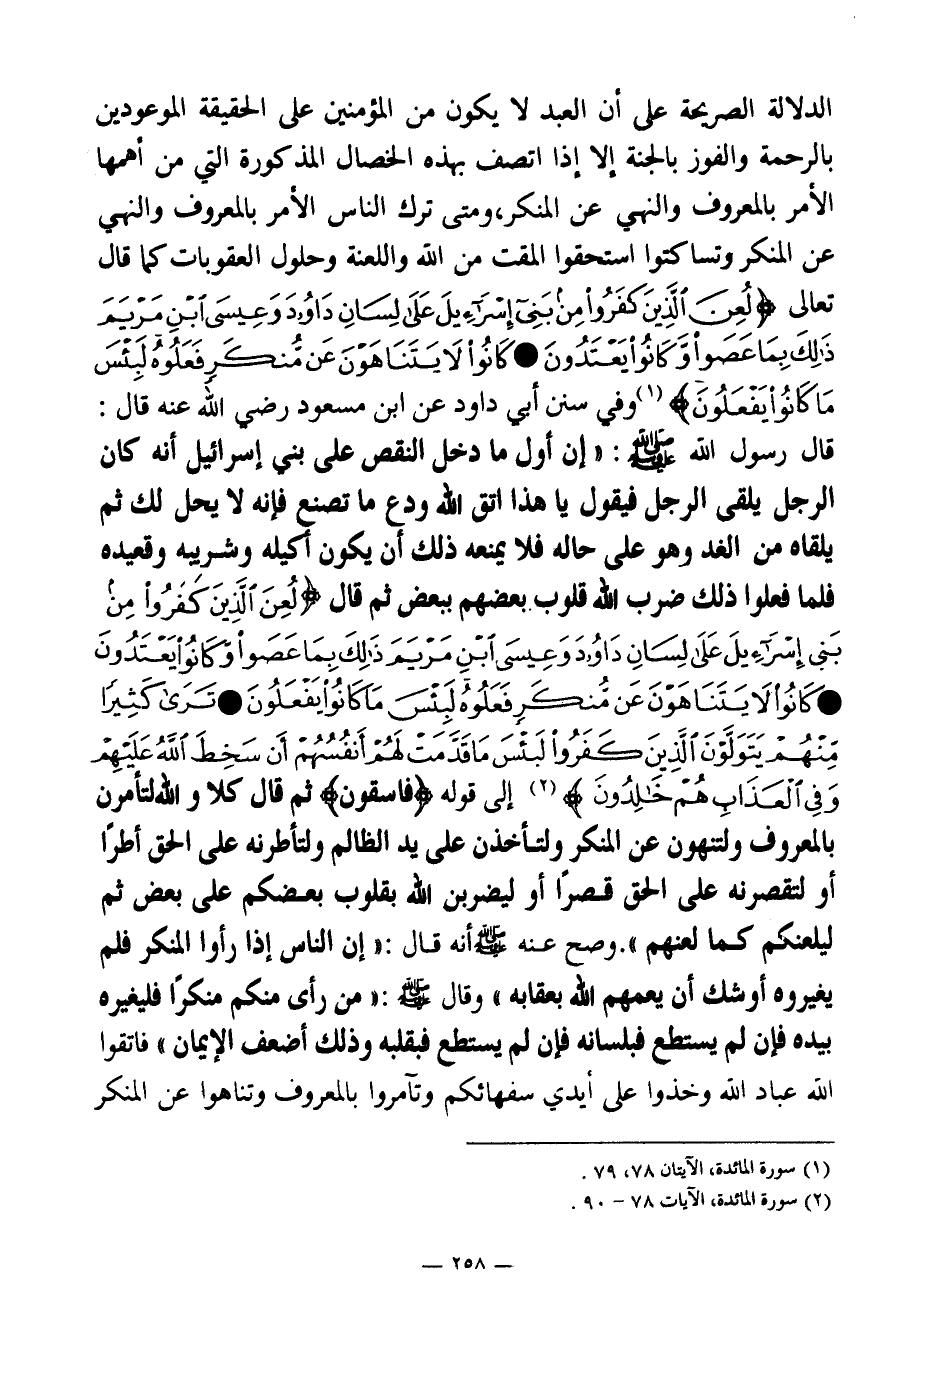 الدلالة الصريحة على أن العبد لا يكون من المؤمنين على الحقيقة الموعودين
بالرحمة والفوز بالجنة إلا إذا اتصف بهذه الخصال المذكورة التي من أهمها
الأمر بالمعروف والنهي عن المنكر،ومتى ترك الناس الأمر بالمعروف والنهي
عن المنكر وتساكتوا استحقوا المقت من الله واللعنة وحلول العقوبات كما قال
تعالى ﴿ لُعِنَ ٱلَّذِينَ كَفَرُوا۟ مِنۢ بَنِىٓ إِسْرَٰٓءِيلَ عَلَىٰ لِسَانِ دَاوُۥدَ وَعِيسَى ٱبْنِ مَرْيَمَ
ذَٰلِكَ بِمَا عَصَوا۟ وَّكَانُوا۟ يَعْتَدُونَ ● كَانُوا۟ لَا يَتَنَاهَوْنَ عَن مُّنكَرٍ فَعَلُوهُ لَبِئْسَ
مَا كَانُوا۟ يَفْعَلُونَ ﴾ (١) وفي سنن أبي داود عن ابن مسعود رضي الله عنه قال :
قال رسول الله ﷺ : « إن أول ما دخل النقص على بني إسرائيل أنه كان
الرجل يلقى الرجل فيقول يا هذا اتق الله ودع ما تصنع فإنه لا يحل لك ثم
يلقاه من الغد وهو على حاله فلا يمنعه ذلك أن يكون أكيله وشريبه وقعيده
فلما فعلوا ذلك ضرب الله قلوب بعضهم ببعض ثم قال ﴿ لُعِنَ ٱلَّذِينَ كَفَرُوا۟ مِنۢ
بَنِىٓ إِسْرَٰٓءِيلَ عَلَىٰ لِسَانِ دَاوُۥدَ وَعِيسَى ٱبْنِ مَرْيَمَ ذَٰلِكَ بِمَا عَصَوا۟ وَّكَانُوا۟ يَعْتَدُونَ
● كَانُوا۟ لَا يَتَنَاهَوْنَ عَن مُّنكَرٍ فَعَلُوهُ لَبِئْسَ مَا كَانُوا۟ يَفْعَلُونَ ● تَرَىٰ كَثِيرًا
مِّنْهُمْ يَتَوَلَّوْنَ ٱلَّذِينَ كَفَرُوا۟ لَبِئْسَ مَا قَدَّمَتْ لَهُمْ أَنفُسُهُمْ أَن سَخِطَ ٱللَّهُ عَلَيْهِمْ
وَفِى ٱلْعَذَابِ هُمْ خَٰلِدُونَ ﴾ (٢) إلى قوله ﴿ فاسقون ﴾ ثم قال كلا و الله لتأمرن
بالمعروف ولتنهون عن المنكر ولتأخذن على يد الظالم ولتأطرنه على الحق أطرًا
أو لتقصرنه على الحق قصرًا أو ليضربن الله بقلوب بعضكم على بعض ثم
ليلعنكم كما لعنهم ».وصح عنه ﷺ أنه قال :« إن الناس إذا رأوا المنكر فلم
يغيروه أوشك أن يعمهم الله بعقابه » وقال ﷺ :« من رأى منكم منكرًا فليغيره
بيده فإن لم يستطع فبلسانه فإن لم يستطع فبقلبه وذلك أضعف الإيمان » فاتقوا
الله عباد الله وخذوا على أيدي سفهائكم وتآمروا بالمعروف وتناهوا عن المنكر
(١) سورة المائدة، الآيتان ٧٨، ٧٩ .
(٢) سورة المائدة، الآيات ٧٨ – ٩٠ .
— ٢٥٨ —